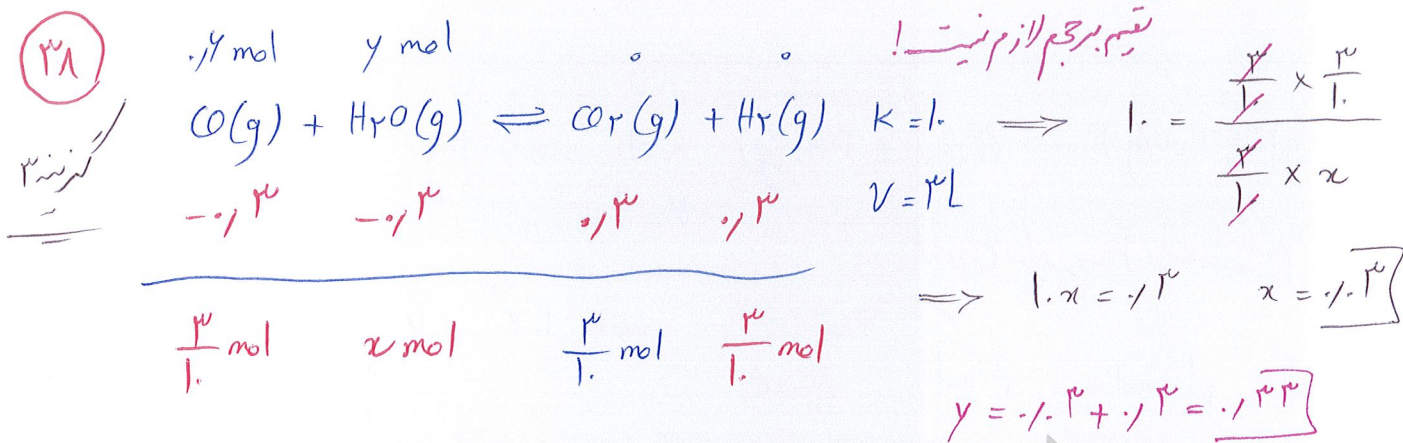 ۳۸
گزینه ۳
۰٫۶ mol y mol ۰ ۰
تقسیم بر حجم لازم نیست!
CO(g) + H۲O(g) ⇌ CO۲(g) + H۲(g) K = ۱۰ ⟹ ۱۰ = (۳/۱۰ × ۳/۱۰) / (۳/۱۰ × x)
-۰٫۳ -۰٫۳ ۰٫۳ ۰٫۳ V = ۳L
⟹ ۱۰x = ۰٫۳ x = ۰٫۰۳
۳/۱۰ mol x mol ۳/۱۰ mol ۳/۱۰ mol
y = ۰٫۰۳ + ۰٫۳ = ۰٫۳۳